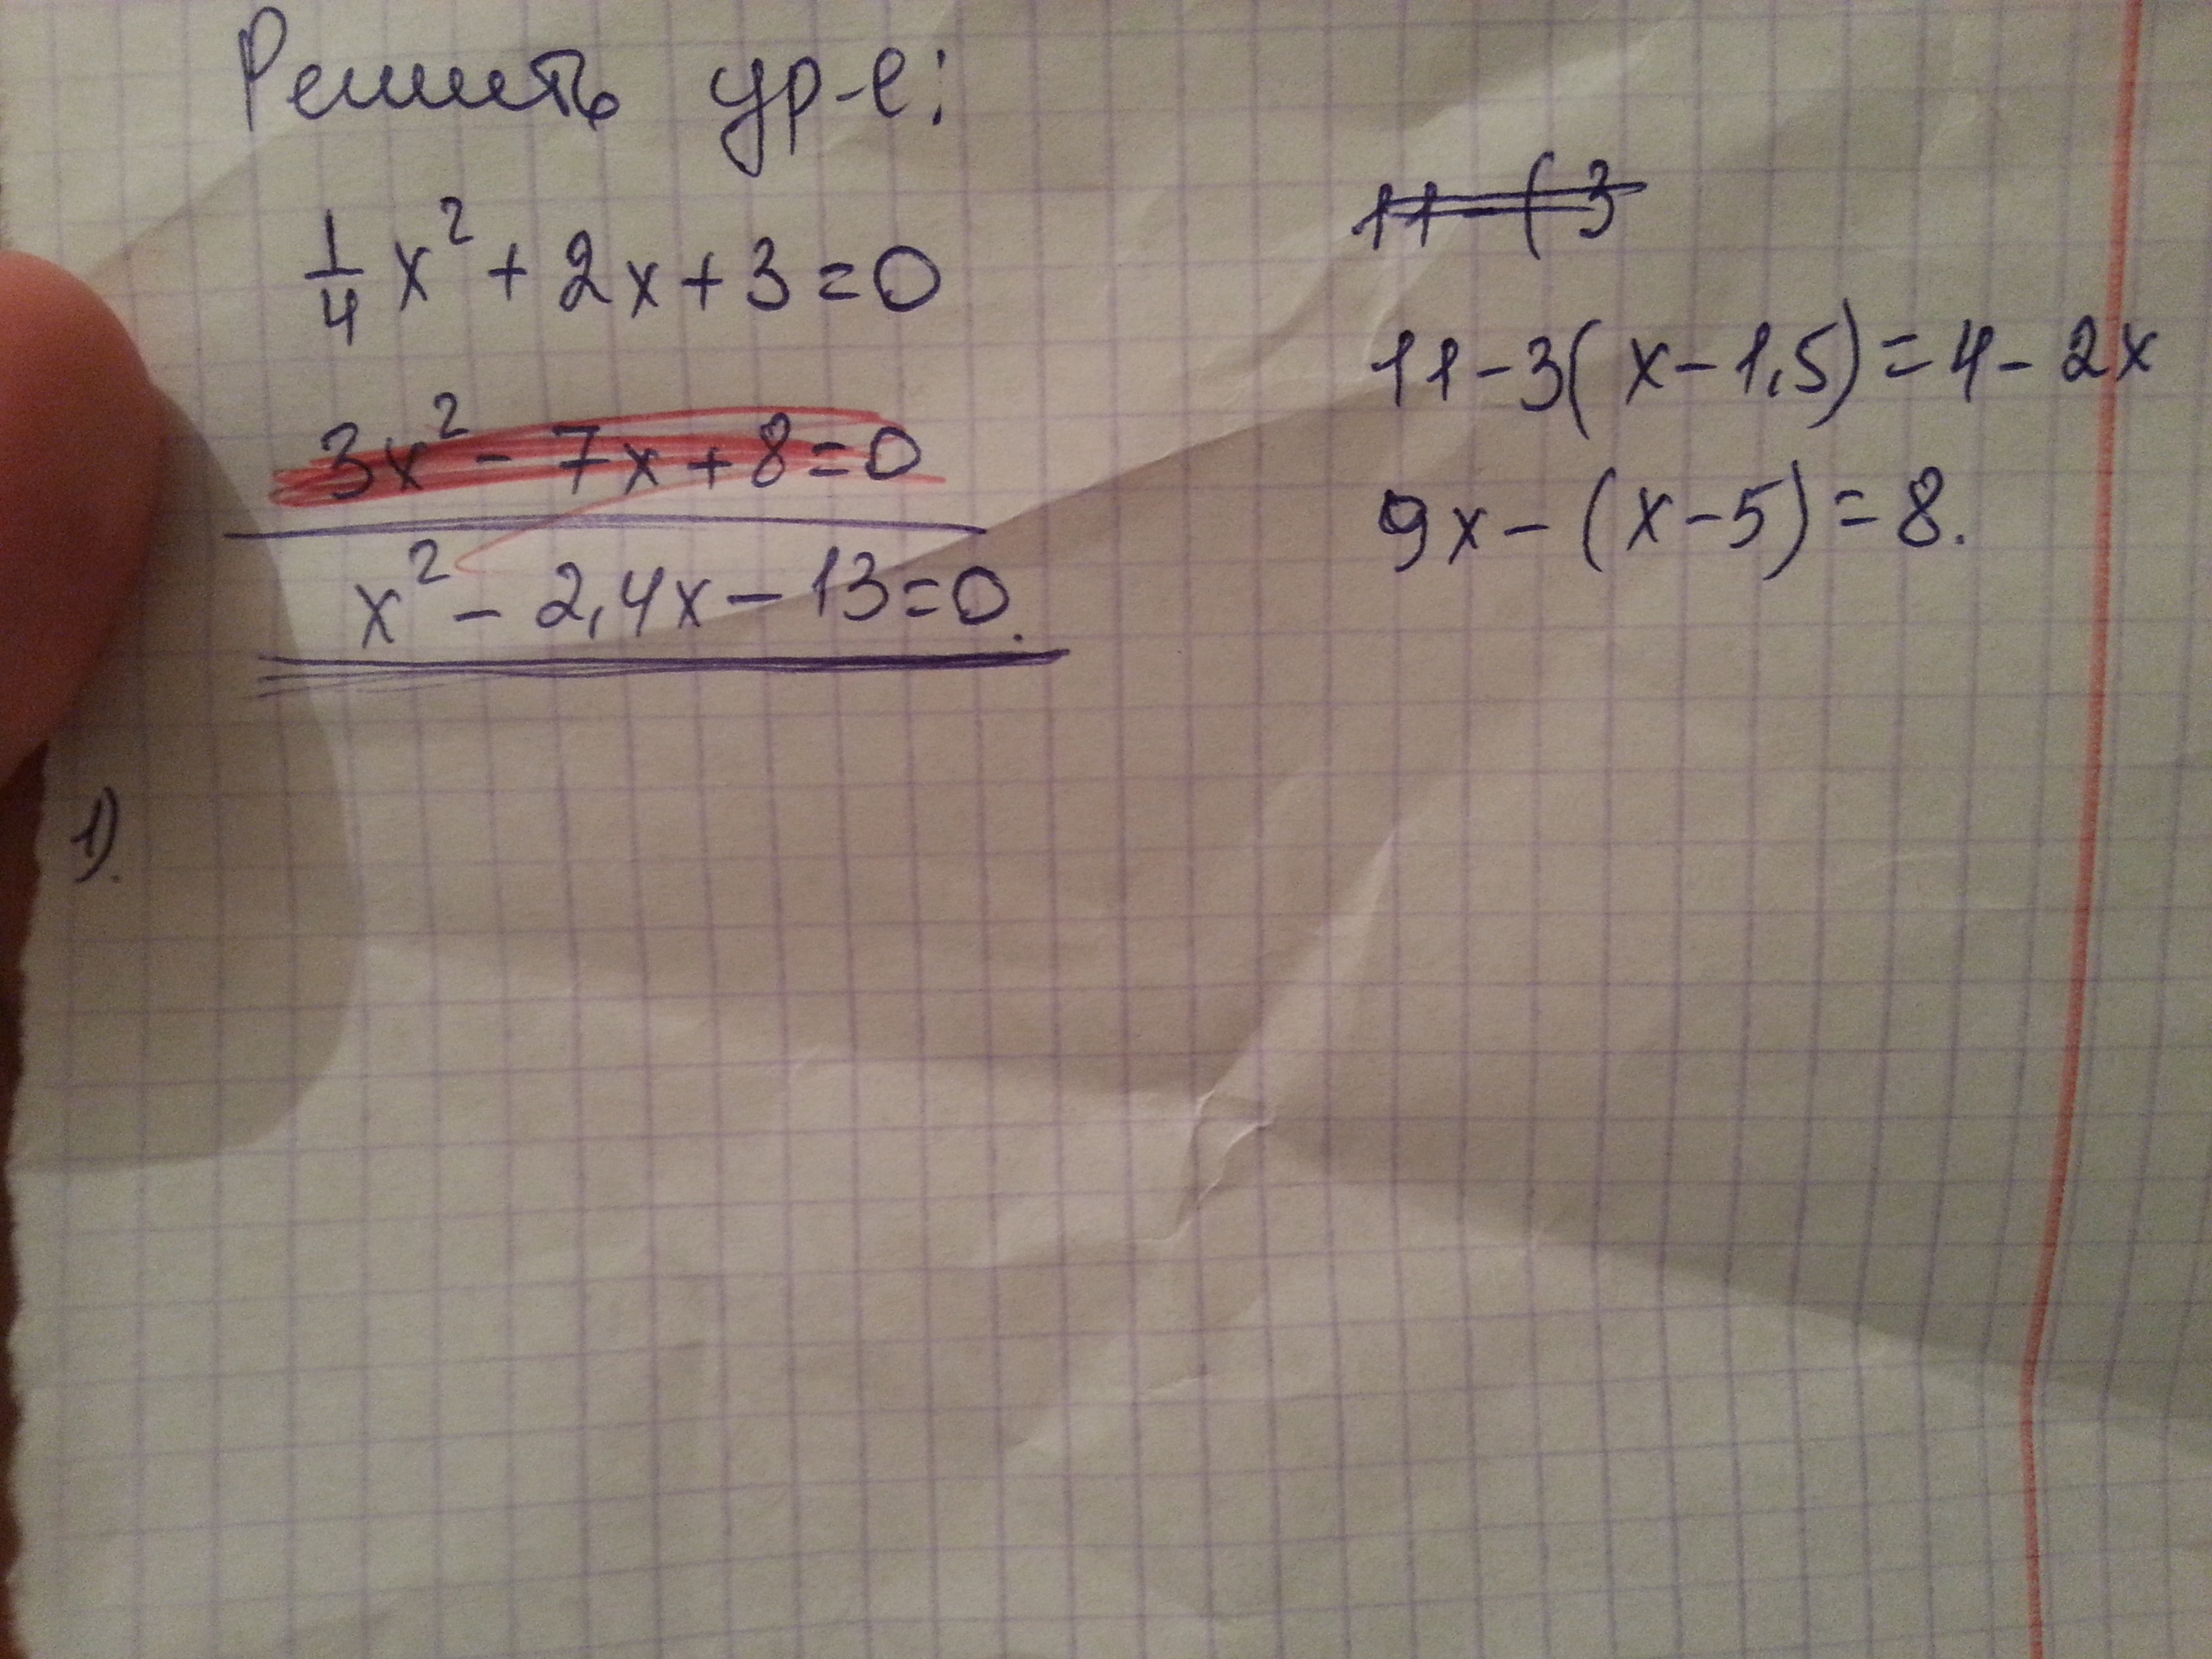 Решить ур-е:
1/4 x² + 2x + 3 = 0
3x² - 7x + 8 = 0
x² - 2,4x - 13 = 0.
11 - (3
11 - 3(x - 1,5) = 4 - 2x
9x - (x - 5) = 8.
1).